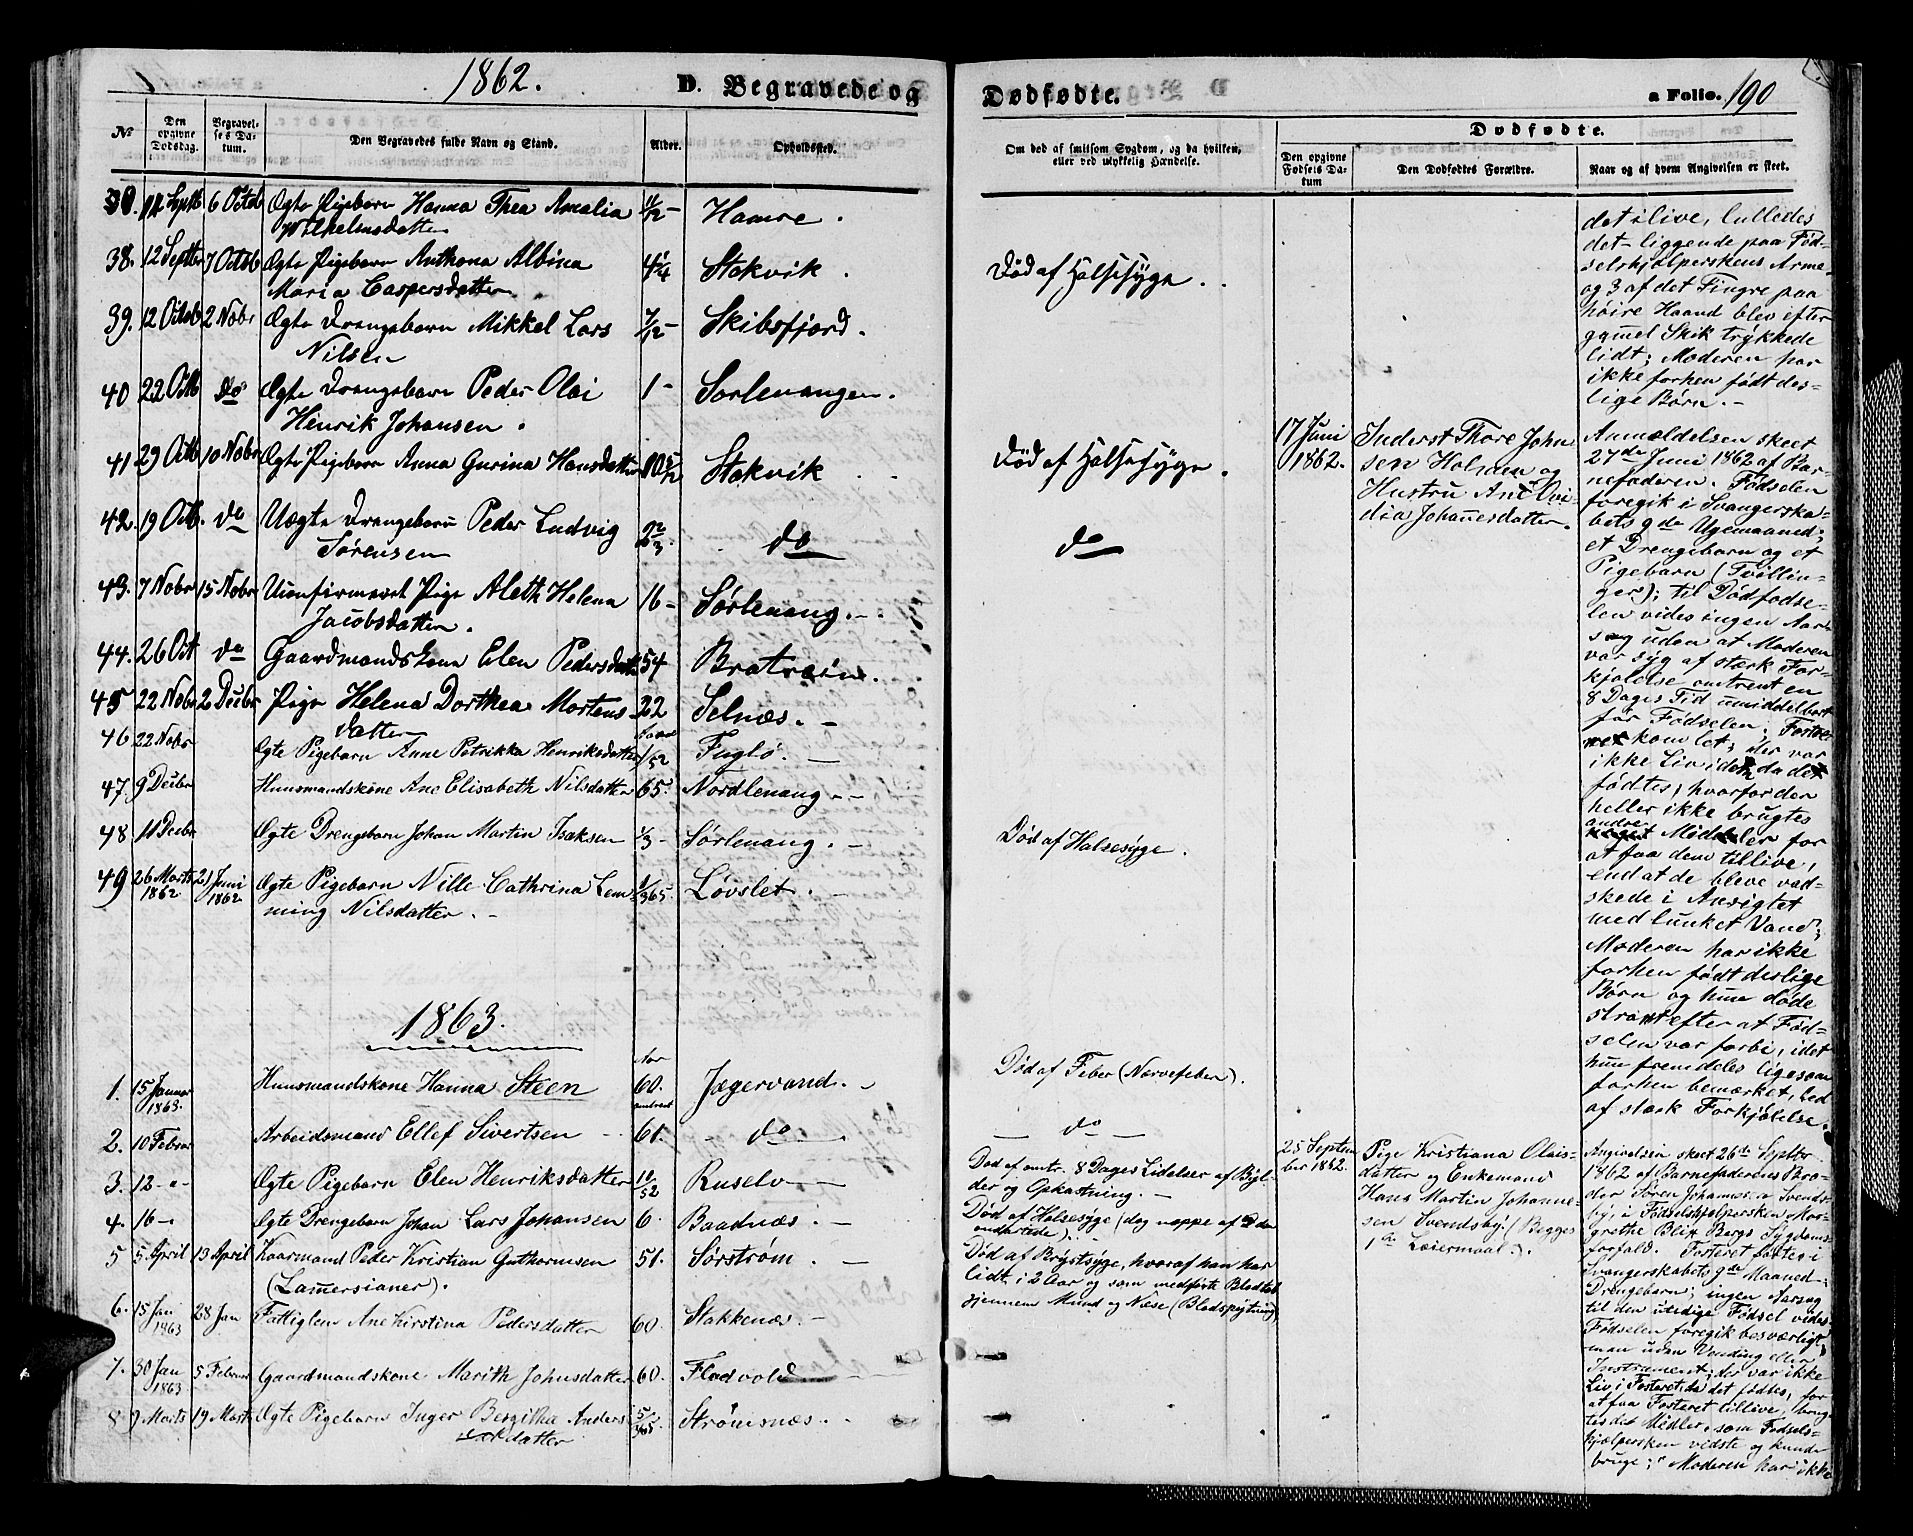 1862.
D. Begravede og
Dødfødte.
a Folio. 190
No
Den opgivne Dødsdag.
Begravelses Datum.
Den Begravedes fulde Navn og Stand.
Alder.
Opholdssted.
Om død af smitsom Sygdom, og da hvilken, eller ved ulykkelig Hændelse.
Dødfødte.
Den opgivne Fødsels Datum
Den Dødfødtes Forældre.
Naar og af hvem Angivelsen er skeet.
6 Octob Ægte Pigebarn Hanna Thea Amalia 11/12 - Hamre.
Wilhelmsdatter
38. 12 Septbr 7 Octob Ægte Pigebarn Anthona Albina 4 1/4 Stakvik. Død af Halsesyge.
Maria Caspersdatter
39. 12 Octob 2 Nobr Ægte Drengebarn Mikkel Lars 7/12 - Skibsfjord.
Nilsen
40 22 Octb do Ægte Drengebarn Peder Olai 1 - Sørlenangen.
Henrik Johansen.
41 29 Octb 10 Nobr Ægte Pigebarn Anna Gurina Hansdatter Stakvik Død af Halsesyge.
42. 19 Octb. do Uægte Drengebarn Peder Ludvig 2 2/3. do do
Sørensen
43. 7 Nobr 15 Nobr Uconfirmeret Pige Aleth Helena 16 - Sørlenang. -
Jacobsdatter.
44. 26 Oct do Gaardmandskone Elen Pedersdatt 54 Bratrein.
45 22 Nobr 2 Decbr Pige Helena Dorthea Mortens 22 Selnæs. -
datter
46 22 Nobr Ægte Pigebarn Anne Petrikka Henriksdatter 1/52 Fuglø. -
47. 9 Decbr Huusmandskone Ane Elisabeth Nilsdatter 65. Nordlenang - -
48 11 Decbr Ægte Drengebarn Johan Martin Isaksen 1/3 - Sørlenang. - Død af Halsesyge.
49 26 Marts 1862 21 Juni 1862 Ægte Pigebarn Nille Cathrina Lem- Løvslet. -
ming Nilsdatter. -
1863.
Aar
1. 15 Januar 1863. Huusmandskone Hanna Steen 60. omtrent Jægervand. - Død af Feber (Nervefeber).
2. 10 Februar Arbeidsmand Ellef Sivertsen 61. do - do -
3. 12 - " - Ægte Pigebarn Elen Henriksdatter 10/52 Ruselv - Død af omtr. 8 Dages Lidelser af Byl-
der og Opkastning. -
4. 16 - Ægte Drengebarn Johan Lars Johansen 6. Baadnæs. - Død af Halsesyge (dog neppe af den
ondartede).
5 5 April 13 April Kaarmand Peder Kristian Guthormsen 51. Sørstrøm. - Død af Brystsyge, hvoraf han har
(Lamersianer). lidt i 2 Aar og som medførte Blodtab
gjennem Mund og Næse (Blodspytning)
6. 15 Jan 1863 28 Jan Fattiglem Ane Kirstina Pedersdatter 60. Stakkenæs. -
7. 30 Jan 1863 5 Februar Gaardmandskone Marith Johnsdatter 60. Fladvold
8 9 Marts 19 Marts Ægte Pigebarn Inger Bergitha Anders Strømsnæs. -
datter
17 Juni 1862.
Inderst Thore John
sen Holmen og
Hustru Ane Ovi
dia Johannesdatter.
25 Septem
ber 1862.
Pige Kristiana Olais-
datter og Enkemand
Hans Martin Johanne-
sen Svendsby. (Begges
1de Leiermaal.)
det ilive, lulledes
det liggende paa Fød-
selshjælperskens Arme
og 3 af det Fingre paa
høire Haand blev efter
gammel Skik trykkede
lidt; Moderen har
ikke forhen født des-
lige Børn. -
Anmeldelsen skeet
27de Juni 1862 af Bar-
nefaderen. Fødselen
foregik i Svangerska-
bets 9de Ugemaaned;
et Drengebarn og et
Pigebarn (Tvillin-
ger); til Dødfødse-
len vides ingen Aar-
sag uden at Moderen
var syg af stærk For-
kjølelse omtrent en
8 Dages Tid umiddelbart
før Fødselen; Foste
komlet; der var
ikke Liv i de da de
fødtes, hvorfor der
heller ikke brugtes
andre Midler for
at faa dem tillive,
end at de bleve vad-
skede i Ansigtet
med lunket Vand;
Moderen har ikke
forhen født deslige
Børn og hun døde
strax efter at Fød-
selen var forbi, idet
hun fremdeles ligesom
forhen bemærket, led
af stærk Forkjølelse.
Angivelsen skeet 26de Septbr.
1862 af Barnefaderens Bro-
der Sören Johannesen Svends-
by, i Fødselshjælpersken Mar-
grethe Blix Bergs Sygdoms-
forfald. Fosteret
Svangerskabets 9de Maaned -
Drengebarn; ingen Aarsag
til den utidige Fødsel vides.
Fødselen foregik besværligt
man uden Vending eller
Instrument; der var ikke
Liv i Fosteret, da det fødtes, for
at faa Fosteret tillive, brug-
tes det Midler, som Fødsels-
hjælpersken vidste og kunde
bruge; Moderen har ikke